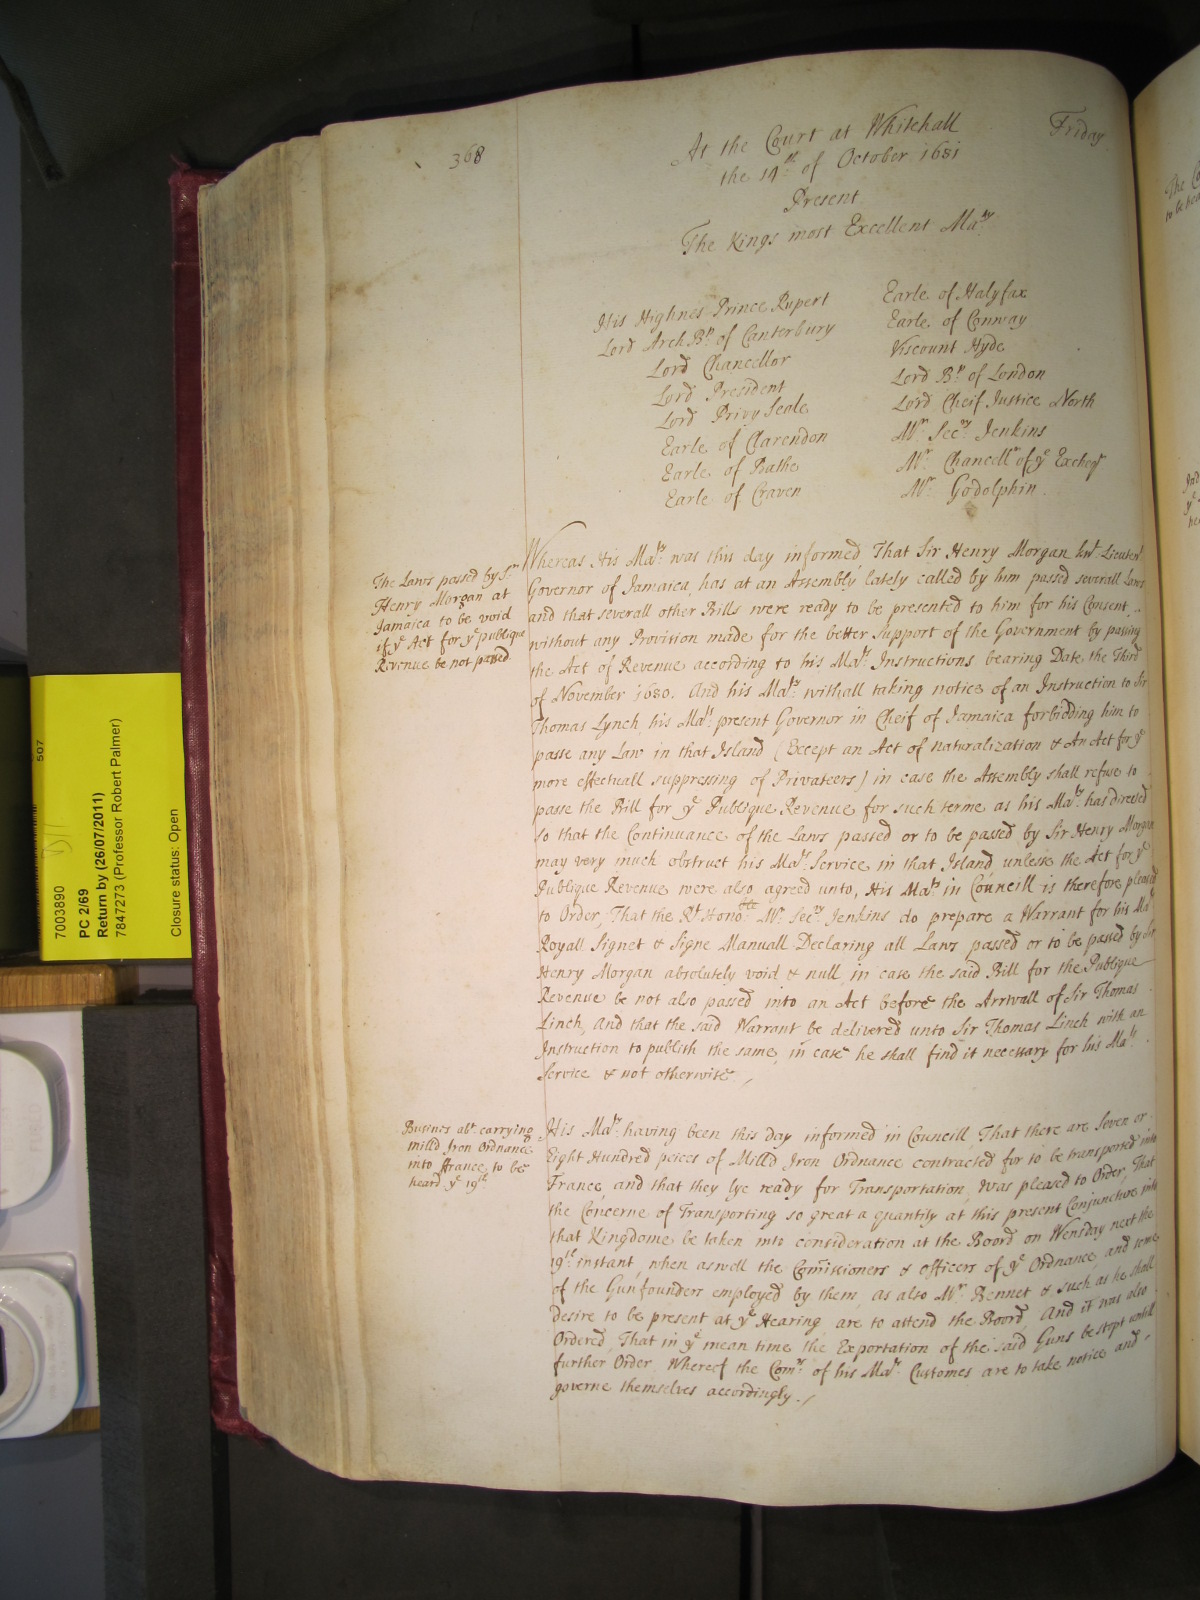 368
At the Court at Whitehall
Friday
the 14th of October 1681
Present
The Kings most Excellent Maty
His Highnes Prince Rupert
Lord ArchBp of Canterbury
Lord Chancellor
Lord President
Lord Privy Seale
Earle of Clarendon
Earle of Bathe
Earle of Craven
Earle of Halyfax
Earle of Conway
Viscount Hyde
Lord Bp of London
Lord Cheif Justice North
Mr Secry Jenkins
Mr Chancellr of ye Excheqr
Mr Godolphin
The Laws passed by Sr
Henry Morgan at
Jamaica to be void
if ye Act for ye publique
Revenue be not passed.
Whereas His Maty was this day informed, That Sir Henry Morgan Knt Lieutent
Governor of Jamaica, has at an Assembly lately called by him passed severall Laws
and that severall other Bills were ready to be presented to him for his Consent
without any Provision made for the better Support of the Government by passing
the Act of Revenue according to his Mats Instructions bearing Date the Third
of November 1680. And his Maty withall taking notice of an Instruction to Sir
Thomas Lynch his Mats present Governor in Cheif of Jamaica forbidding him to
passe any Law in that Island (Except an Act of naturalization & An Act for ye
more effectuall suppressing of Privateers) in case the Assembly shall refuse to
passe the Bill for ye Publique Revenue for such terme as his Maty has directed
so that the Continuance of the Laws passed or to be passed by Sir Henry Morgan
may very much obstruct his Mats Service in that Island, unlesse the Act for ye
Publique Revenue were also agreed unto, His Maty in Councill is therefore pleased
to Order, That the Rt Honoble Mr Secry Jenkins do prepare a Warrant for his Mats
Royall Signet & Signe Manuall Declaring all Laws passed or to be passed by Sir
Henry Morgan absolutely void & null, in case the said Bill for the Publique
Revenue be not also passed into an Act before the Arrivall of Sir Thomas
Linch, And that the said Warrant be delivered unto Sir Thomas Linch with an
Instruction to publish the same, in case he shall find it necessary for his Mats
Service & not otherwise,
Busines abt carrying
milld Iron Ordnance
into ffrance to be
heard ye 19th
His Maty having been this day informed in Councill, That there are Seven or
Eight Hundred peices of Milld Iron Ordnance contracted for to be transported into
France, and that they lye ready for Transportation, Was pleased to Order, That
the Concerne of Transporting so great a quantity at this present Conjuncture into
that Kingdome be taken into consideration at the Board on Wensday next the
19th instant, when aswell the Comissioners & officers of ye Ordnance, and some
of the Gunfounders employed by them, as also Mr Bennet & such as he shall
desire to be present at ye Hearing, are to attend the Board, And it was also
Ordered, That in ye mean time the Exportation of the said Guns be stopt untill
further Order. Whereof the Comrs of his Mats Customes are to take notice and
governe themselves accordingly.
507
7003890
PC 2/69
Return by (26/07/2011)
7847273 (Professor Robert Palmer)
Closure status: Open